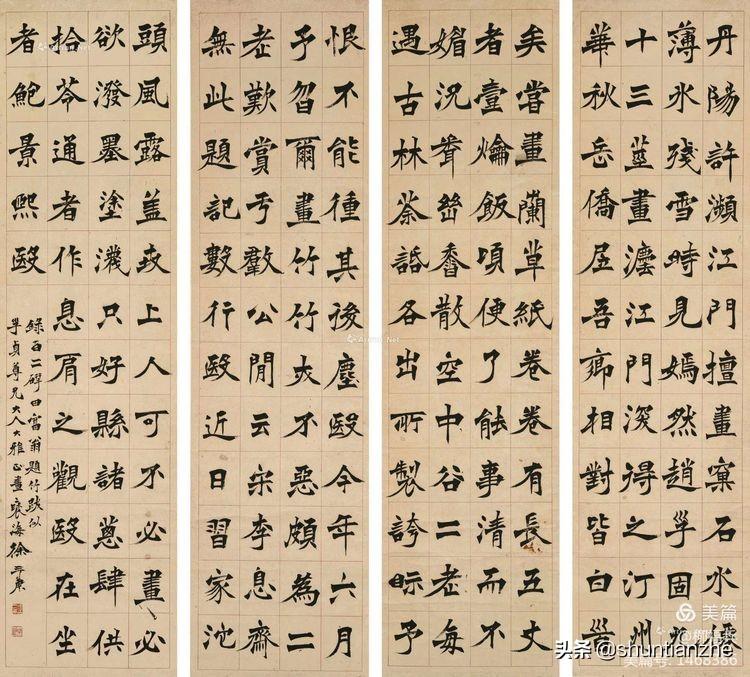 丹陽許瀕江門擅畫窠石水僊
薄冰殘雪時見嫣然趙孚固九
十三畫江門湥得之汀州
華秋岳僑居吾鄉相對皆白首
矣嘗畫蘭草紙卷卷有長五丈
者壹爚飯頃便了能事清而不
媚況聳番散空中谷二老每
遇古林荼話各出所製誇眎予
恨不能種其後塵殹今年六月
予曶爾畫竹竹亦不惡頗為二
老歎賞亏羣公閒云宋李息齋
無此題記數行殹近日習家池
頭風露蓋上人可不必畫必
欲潑墨塗只好縣諸蔥肆供
拾芩通者作息肩之觀殹在坐
者鮑景熙殹
錄百二硯田富翁題竹跋似
孚貞尊兄大人大雅正 褱海徐三庚
美篇
头条 @shuntianzhe
美篇号: 1468386